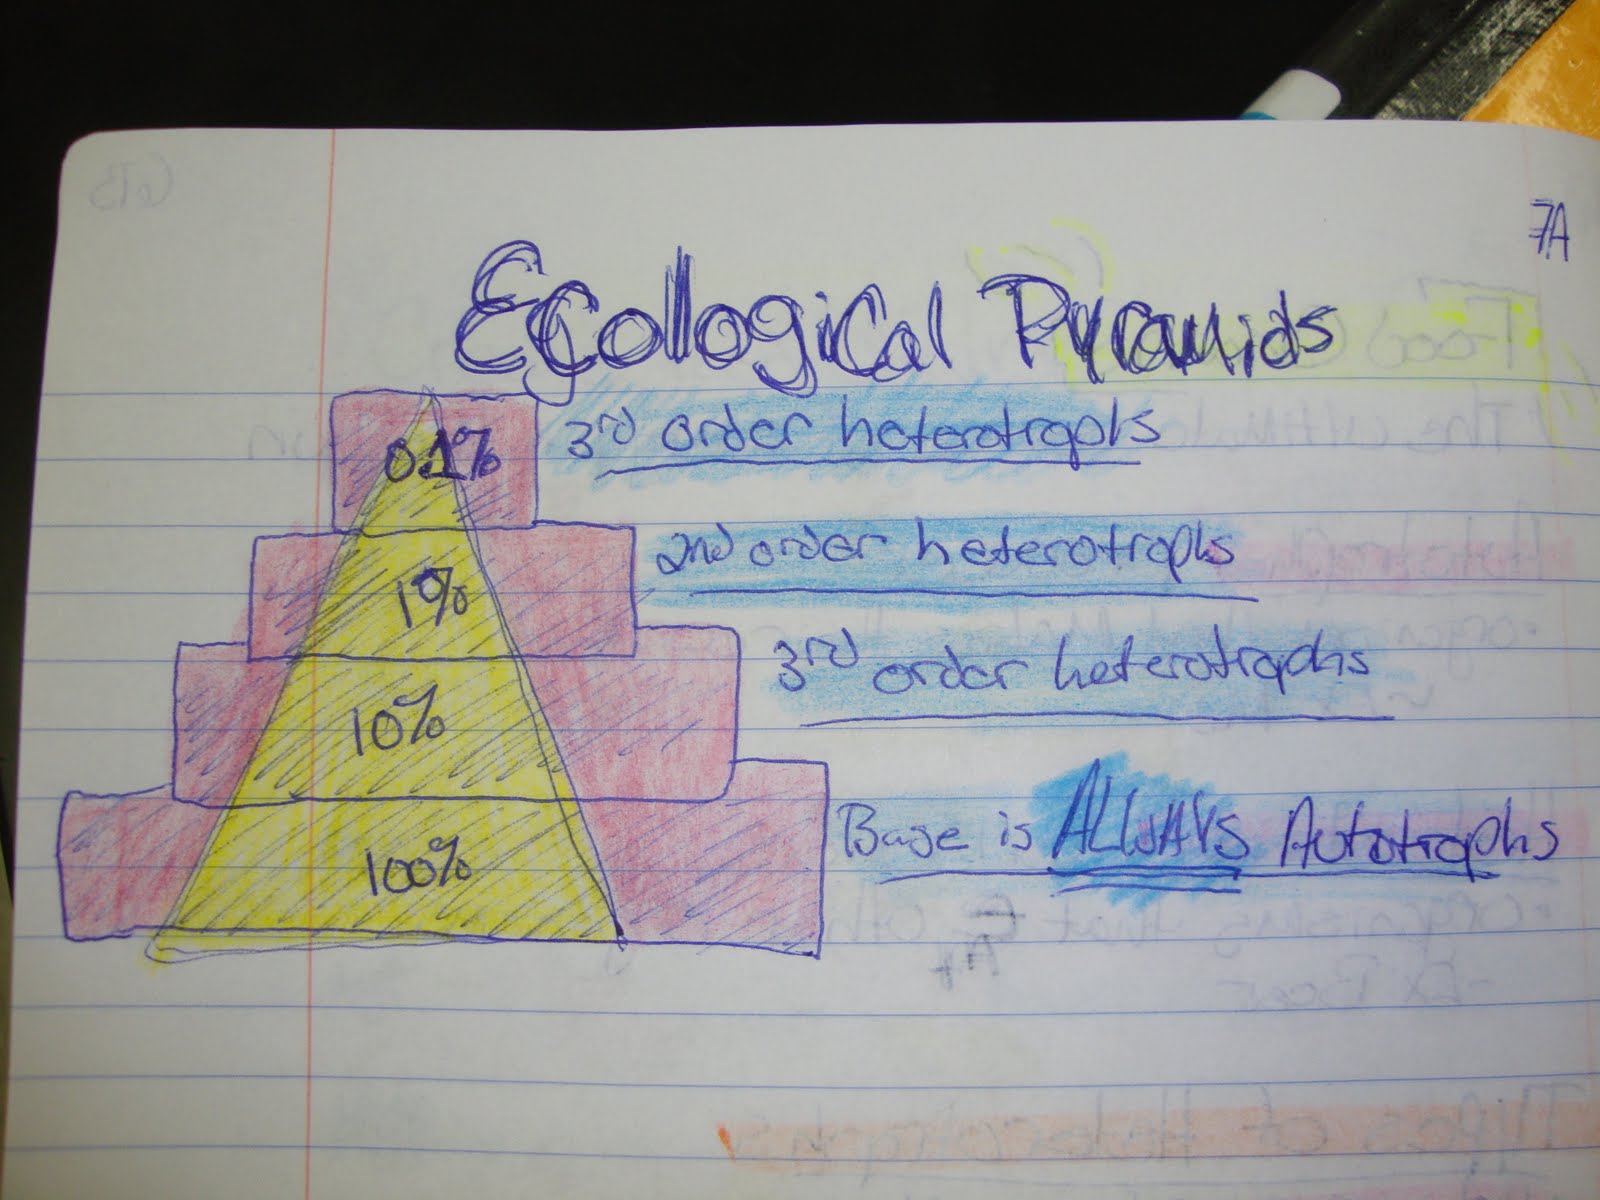 7A
Ecological Pyramids
0.1% 3rd order heterotrophs
1% 2nd order heterotrophs
10% 3rd order heterotrophs
100% Base is ALWAYS Autotrophs